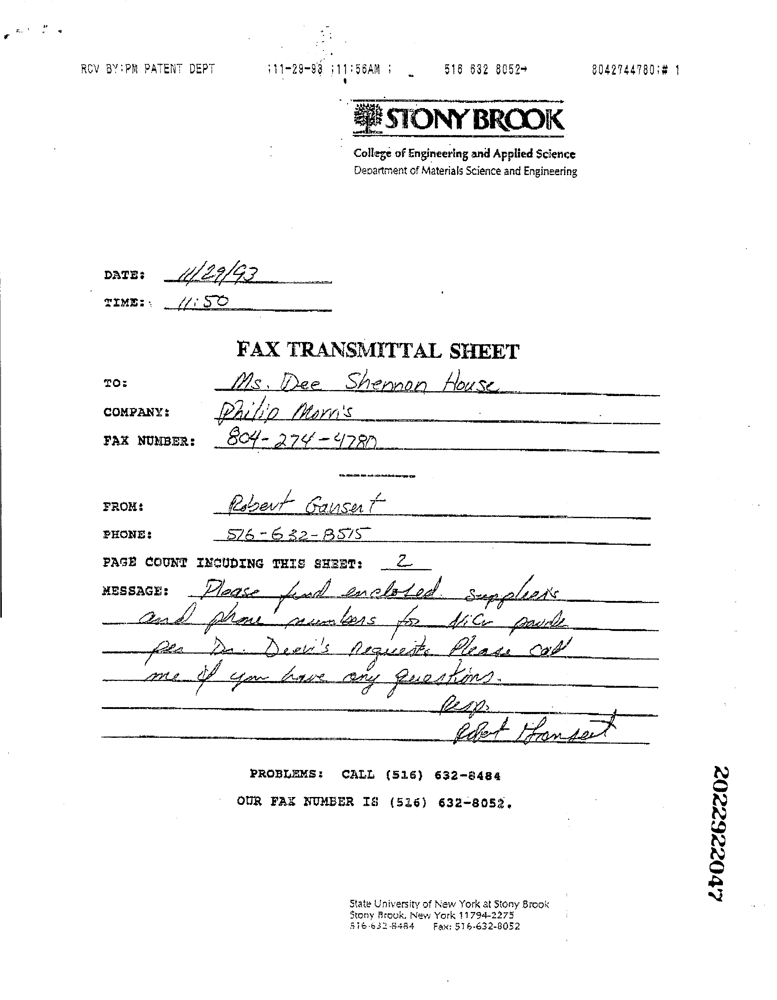 RCV BY:PM PATENT DEPT ;11-29-93 ;11:56AM ; 516 632 8052→ 8042744780;# 1
STONY BROOK
College of Engineering and Applied Science
Department of Materials Science and Engineering
DATE: 11/29/93
TIME: 11:50
FAX TRANSMITTAL SHEET
TO: Ms. Dee Shennon House
COMPANY: Philip Morris
FAX NUMBER: 804-274-4780
FROM: Robert Gansert
PHONE: 516-632-8515
PAGE COUNT INCUDING THIS SHEET: 2
MESSAGE: Please find enclosed suppliers
and phone numbers for NiCr
per Dr. Deevi's request. Please call
me if you have any questions.
Resp.
Robert Gansert
PROBLEMS: CALL (516) 632-8484
OUR FAX NUMBER IS (516) 632-8052.
2022922047
State University of New York at Stony Brook
Stony Brook, New York 11794-2275
516-632-8484 Fax: 516-632-8052